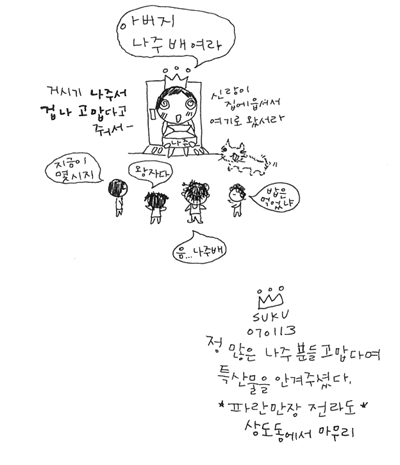 아버지
나주배여라
거시기 나주서
겁나 고맙다고
줘서-
신랑이
집에읍셔서
여기로 왔서라
나주
지금이
몇시지
왕자다
밥은
먹었냐
음...나주배
SUKU
070113
정 많은 나주 분들 고맙다며
특산물을 안겨주셨다.
*파란만장 전라도*
상도동에서 마무리